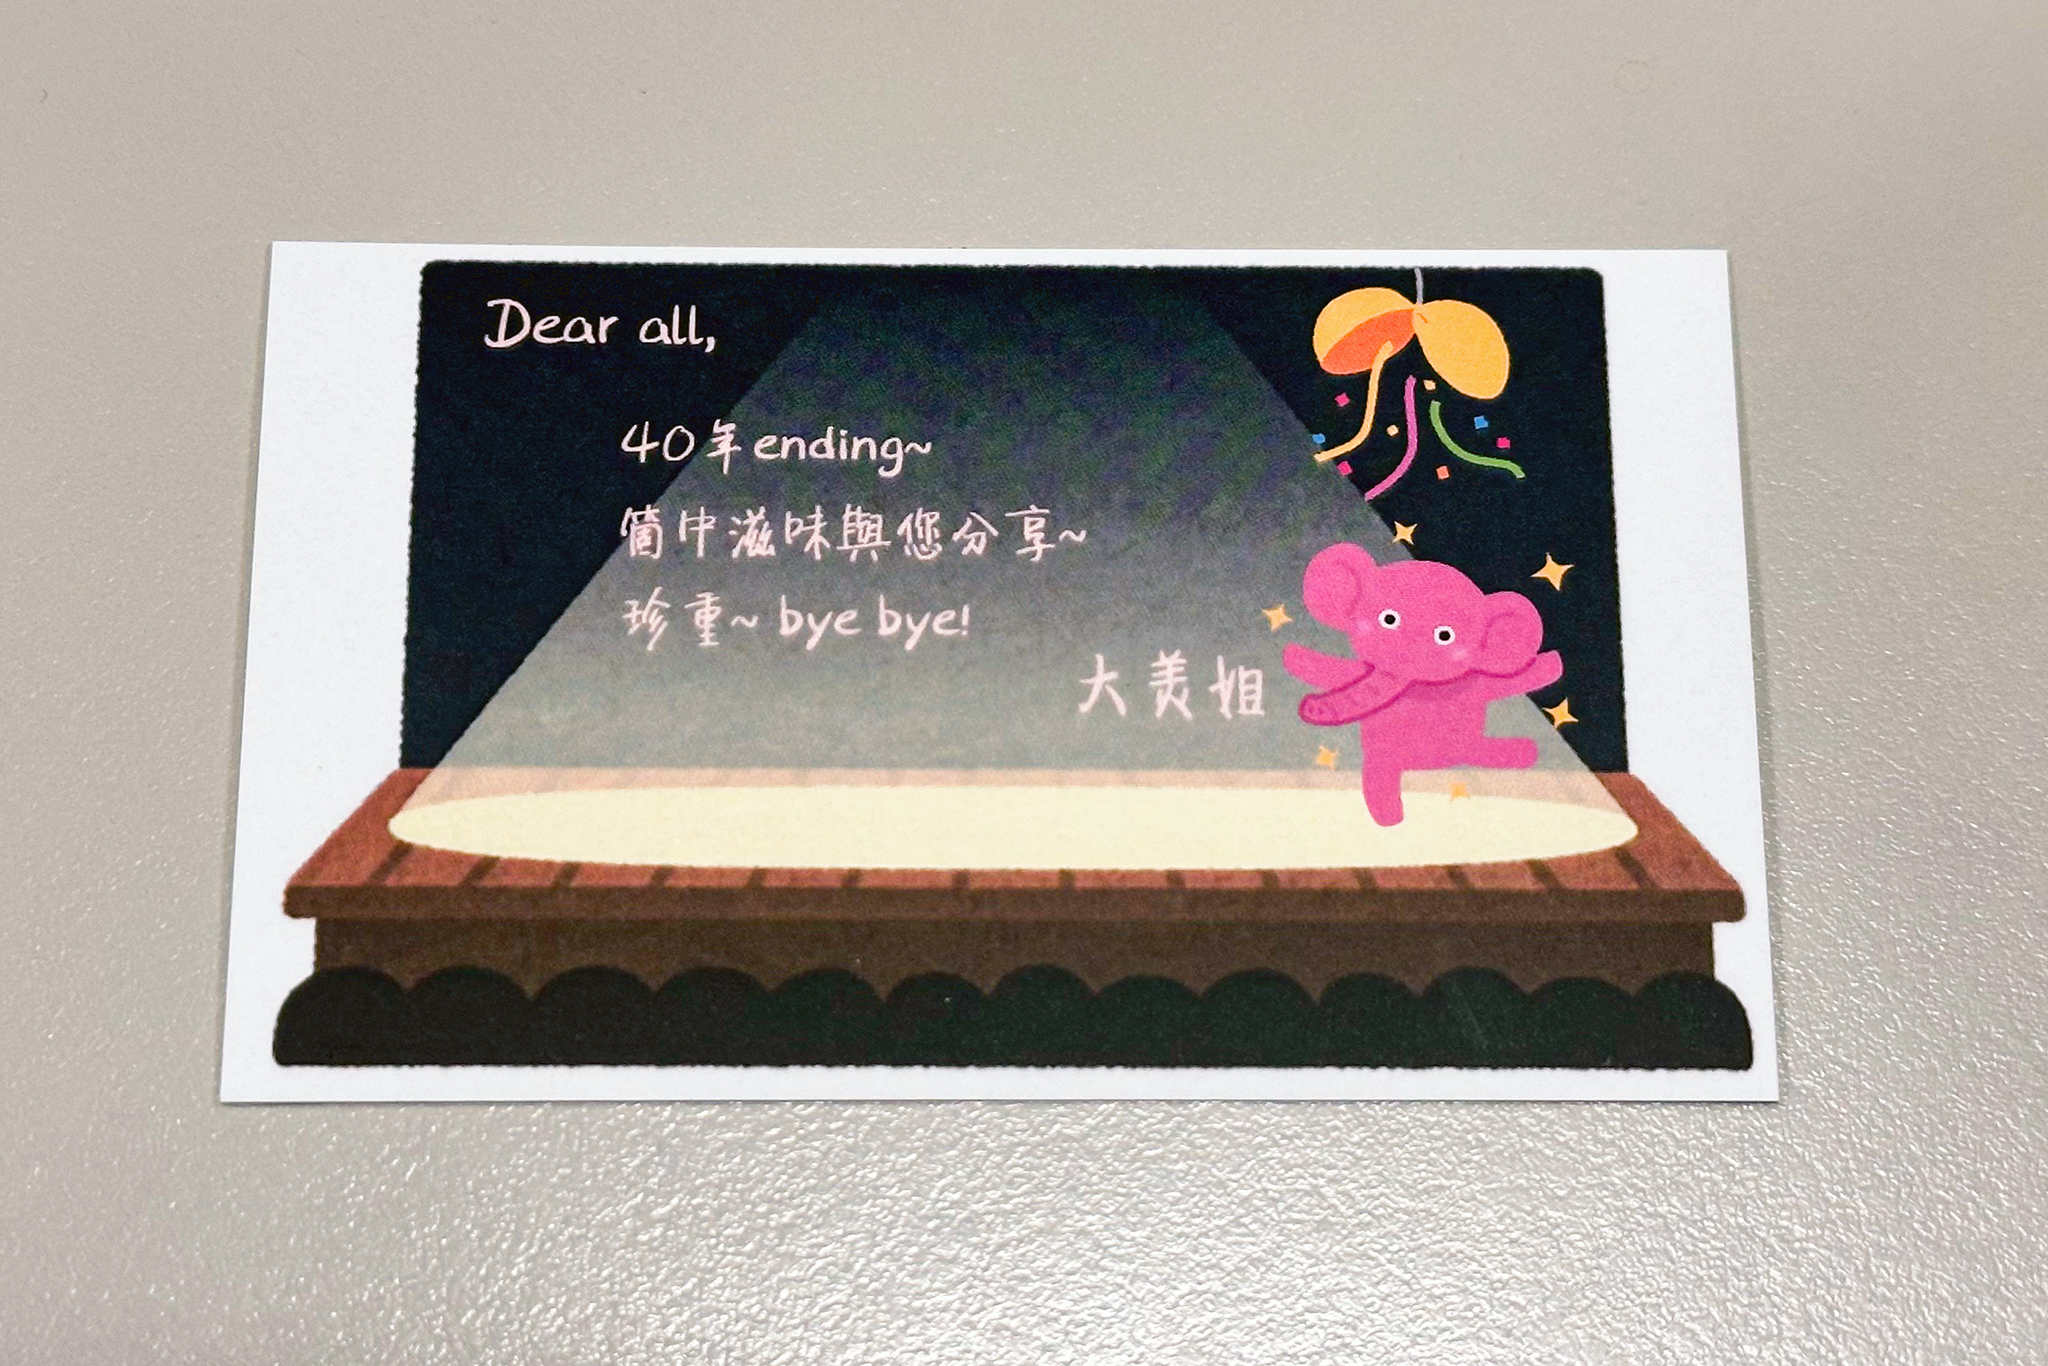 Dear all,
40年ending~
箇中滋味與您分享~
珍重~ bye bye!
大美姐